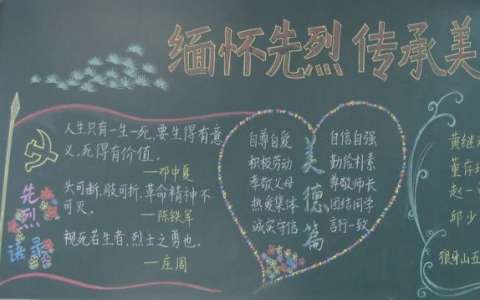 缅怀先烈 传承美
人生只有一生一死,要生得有意
义,死得有价值。
——邓中夏
头可断,肢可折,革命精神不
可灭。
——陈铁军
视死若生者,烈士之勇也。
——庄周
先烈
语录
自尊自爱
积极劳动
孝敬父母
热爱集体
诚实守信
美德篇
自信自强
勤俭朴素
尊敬师长
团结同学
言行一致
黄继
董存
赵一
邱少
狼牙山五